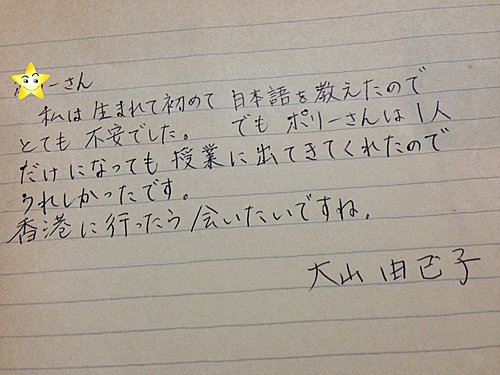 ーさん
私は生まれて初めて 日本語を教えたので
とても 不安でした。 でも ポリーさんは1人
だけになっても 授業に出てきてくれたので
うれしかったです。
香港に行ったら 会いたいですね。
大山 由己子